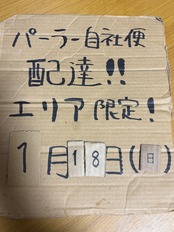 パーラー自社便
配達!!
エリア限定!
1月18日(日)